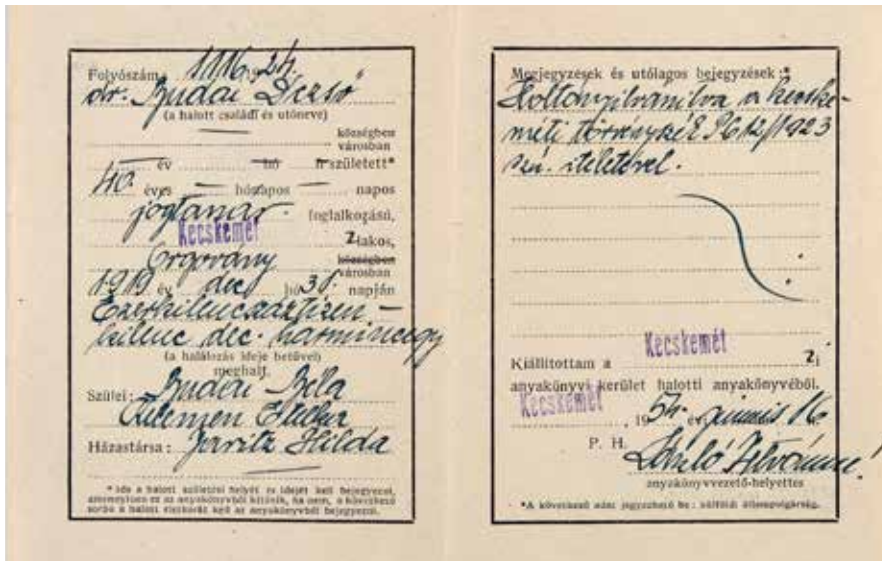 Folyószám: 1116/1924.
dr. Budai Dezső
(a halott családi és utóneve)
községben
városban
év hó n született*
40 éves hónapos napos
jogtanár foglalkozású,
Kecskemét 2 lakos,
Orgovány községben
városban
1919 év dec hó 31. napján
Ezerkilencszáztizen-
kilenc dec. harmincegy
(a halálozás ideje betűvel)
meghalt.
Szülei: Budai Béla
Kelemen Etelka
Házastársa: Jaritz Hilda
* Ide a halott születési helyét és idejét kell bejegyezni,
amennyiben ez az anyakönyvből kitűnik, ha nem, a következő
sorba a halott életkorát kell az anyakönyvből bejegyezni.
Megjegyzések és utólagos bejegyzések:*
Holtnyilvánítva a kecske-
méti törvényszék P612/1923
sz. ítéletével.
Kiállítottam a Kecskemét 2i
anyakönyvi kerület halotti anyakönyvéből.
Kecskemét, 1954. év június 16
P. H.
László Istvánné
anyakönyvvezető-helyettes
*A következő adat jegyezhető be: külföldi állampolgárság.